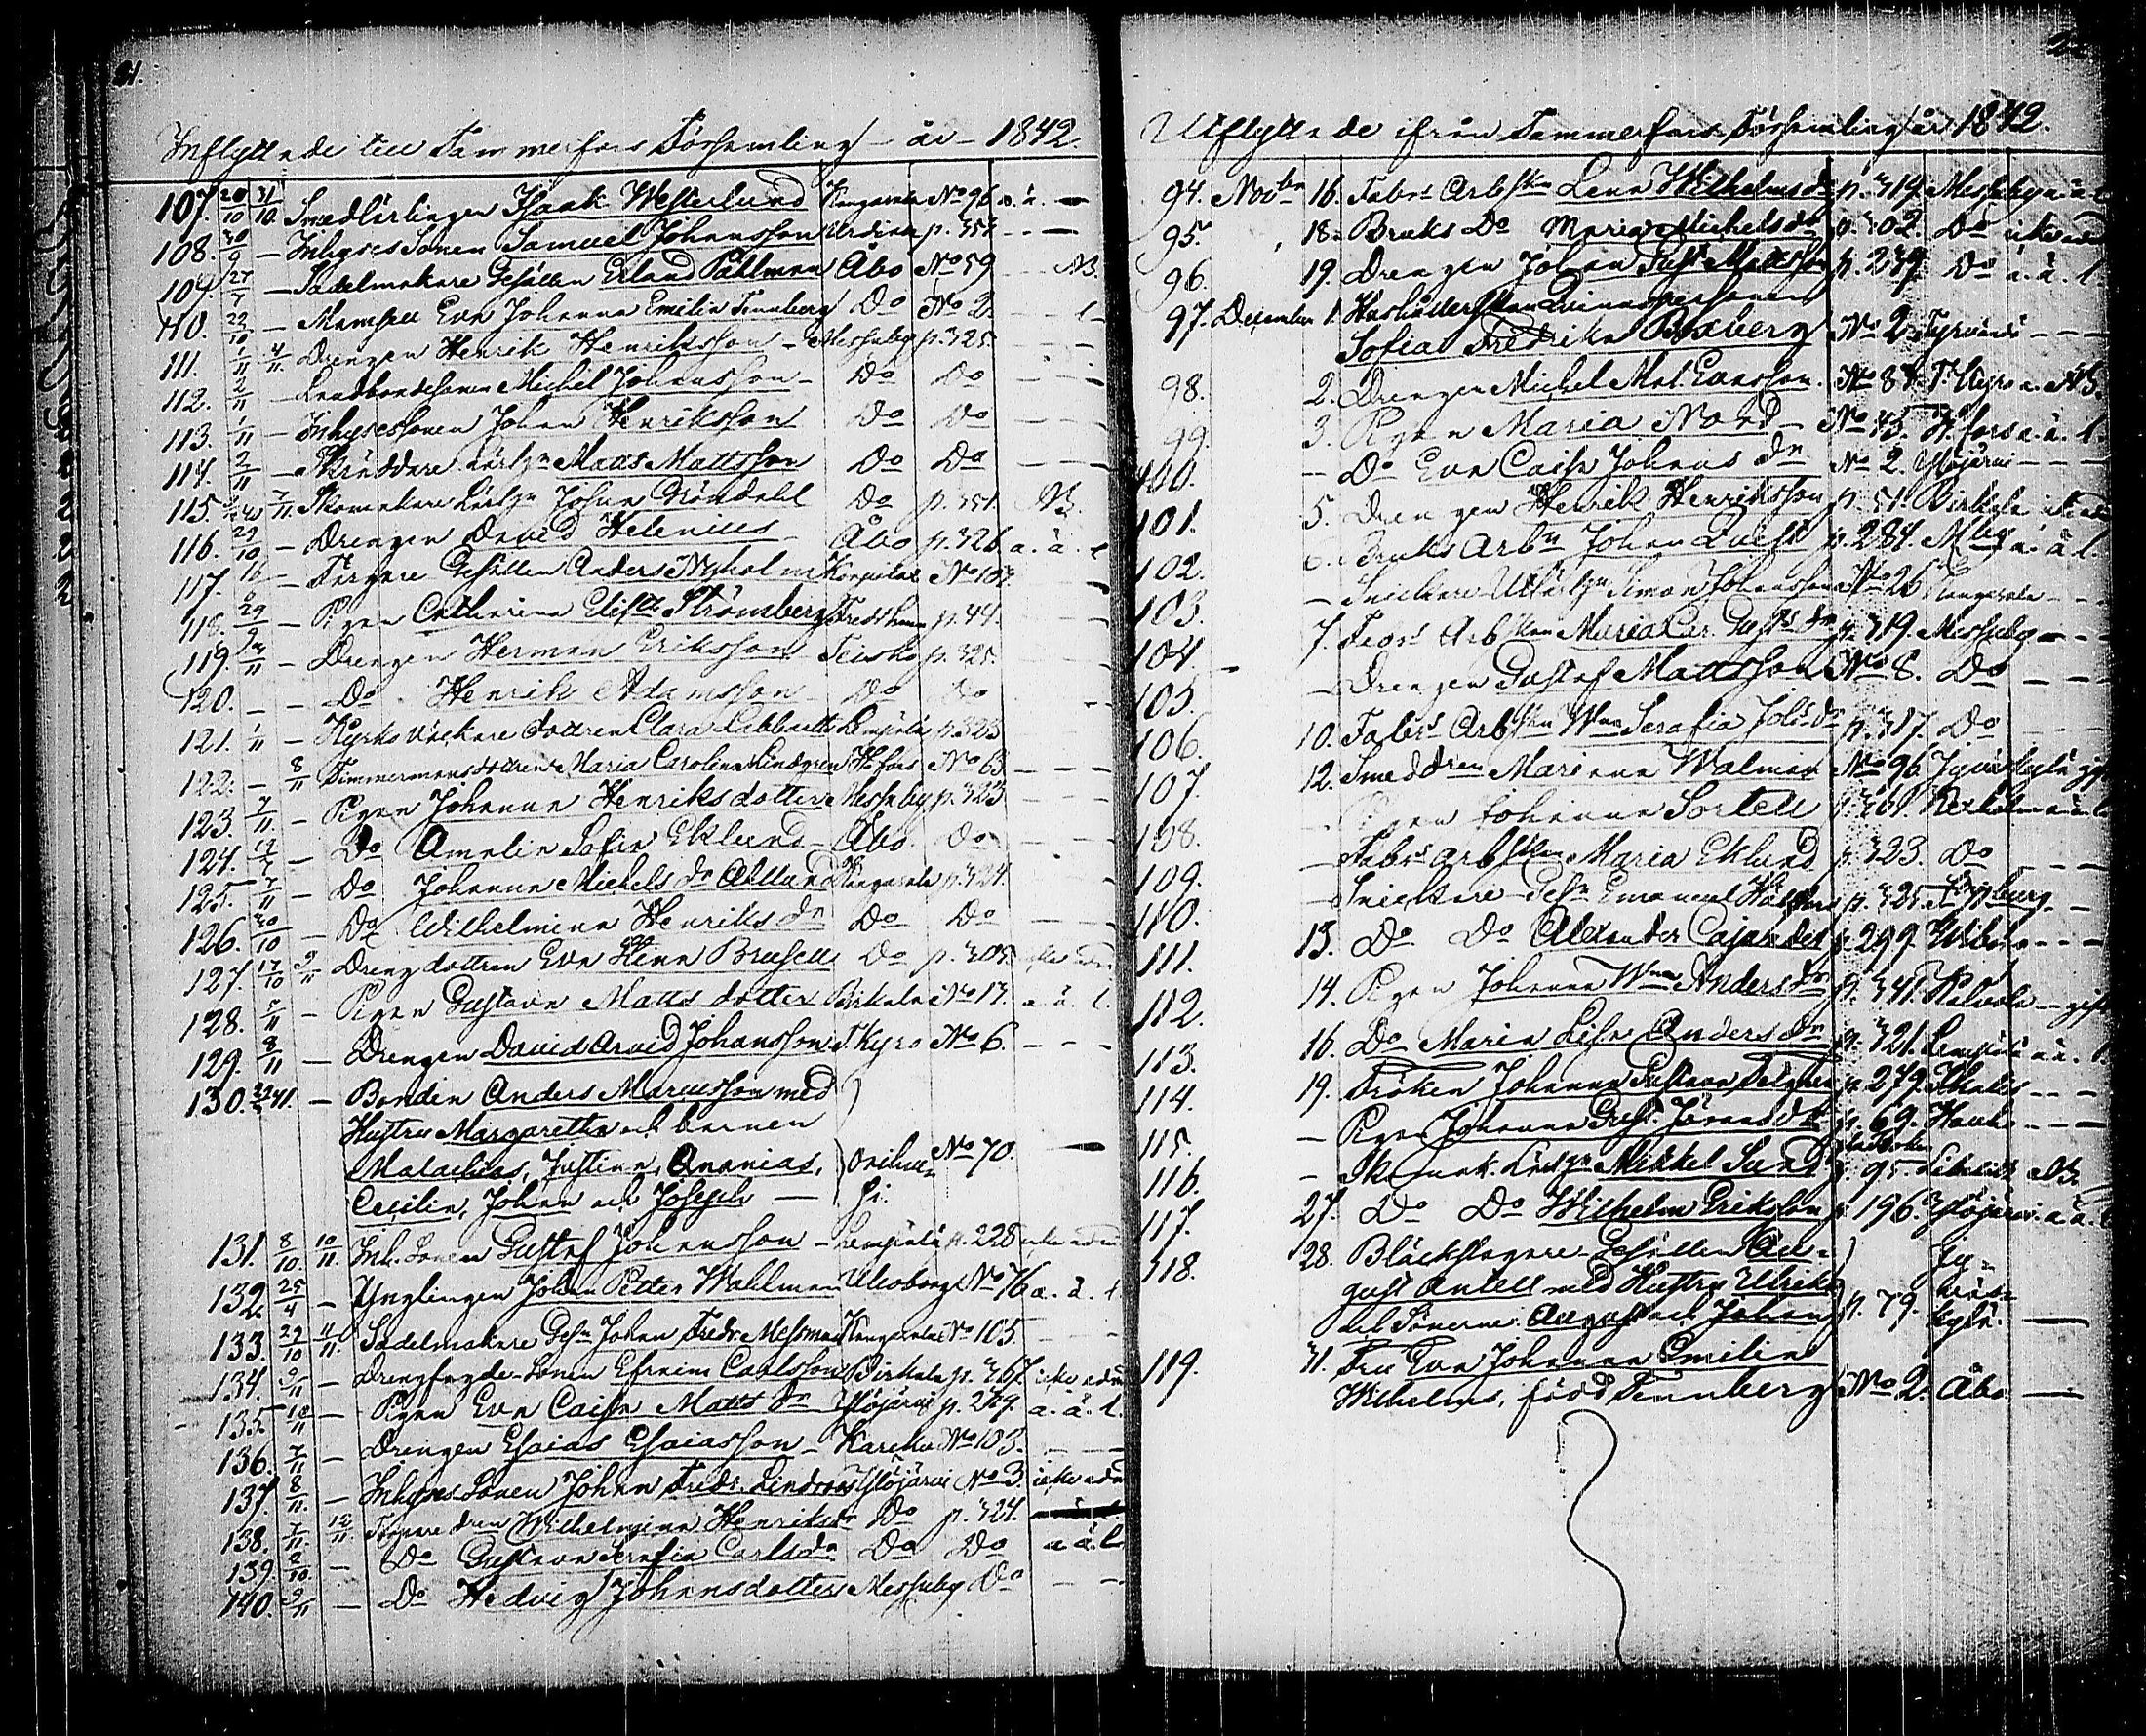 Inflyttade till Tammerfors Församling år 1842.
107. 20/10 31/10. Smedlärlingen Isaak Westerlund Kangasala No 96 a.ä. —
108. 30/9 — Inhyses Sonen Samuel Johansson Urdiala p. 353 - - —
109. 27/7 — Sadelmakare Gesällen Erland Påhlman Åbo No 59 - - NB.
110. 22/10 — Mamsell Eva Johanna Emilia Tennberg Do No 2. - - l
111. 1/11 4/11. Drengen Henrik Henriksson - Messuby p. 325 - - -
112. 2/11 — Landbondesonen Michel Johansson - Do Do - - -
113. 1/11 — Inhysessonen Johan Henriksson Do Do - - -
114. 2/11 — Skräddare Lärlgn Matts Mattsson Do Do - - -
115. 7/11. Skomakare Lärlgn Johan Gröndahl Do p. 351. NB.
116. 29/10 — Drengen David Helenius Åbo p. 326 a. ä. l
117. 16 — Färgare Gesällen Anders Nyholm No
118. 29/9 — Pigan Catharina Elisth Strömberg Fredrhamn p. 44. - - -
119. 4/11 — Drengen Herman Eriksson Teisko p. 325. - - -
120. — — Do Henrik Adamsson Do Do - - -
121. 1/11 — Kyrkoväckare dottren Clara Lempälä p. 323
122. — 8/11 Timmermansdottren Maria Carolina Lindgren H.fors No 63 — — —
123. 7/11. — Pigan Johanna Henriksdotter Messuby p. 323 - - -
124. 12/7 — Do Amalia Sofia Eklund - Åbo. Do - - -
125. 7/11 — Do Johanna Michels dr Ahllund Kangasala p. 324.
126. 30/10 — Do Wilhelmina Henriks dr Do Do — — —
127. 17/10 9/11 Drengdottren Eva Hena Brusell Do p. 309.
128. 7/11 — Pigan Gustava Matts dotter Birkala No 13. a. ä. l.
129. 8/11 — Drengen David Arvid Johansson T.kyro No 6. - - -
130. 41. — Bonden Anders Marcusson med
Hustru Margaretha och barnen
Malachias, Justina, Ananias, Orihve- No 70. —
Cecilia, Johan och Joseph — si.
131. 8/10. 10/11. Inh. Sonen Gustaf Johansson - Lempälä p. 228 icke adm
132. 25/4 — Ynglingen Johan Petter Wahlman Uleåborg No 76 a. ä. l
133. 29/10 11/11. Sadelmakare Gesn Johan Fredr. Messman Kangasala No 105 - - -
134. 9/11 — Drengfogde-Sonen Efraim Carlsson Birkala p. 367 icke adm
135. 10/11 — Pigan Eva Caisa Matts dr Ylöjärvi p. 279. a. ä. l.
136. 7/11 — Drengen Esaias Esaiasson - Karkku No 103. - - -
137. 8/11. — Inhyses Sonen Johan Fredr. Lindroos Ylöjärvi No 3. icke adm
138. 7/11. 12/11. Torpare dren Wilhelmina Henriksdr Do p. 324.
139. 2/10. — Do Gustava Serafia Carlsdr Do Do a ä. l.
140. 9/11 — Do Hedvig Johansdotter Messuby Do - -
Utflyttade ifrån Tammerfors Församling år 1842.
94. Novbr 16. Fabrs Arbskan Lena Wilhelms dr p. 319. Messuby a. ä. l
95. 18. Bruks Do Maria Michelsdr p. 302. Do icke adm
96. 19. Drengen Johan Gust Mattsson p. 239. Do a. ä. l.
97. December 1. Hushållerskan Qvinnspersonen
Sofia Fredrika Boxberg No 2 Tyrvändö - - -
98. 2. Drengen Michel Mat. Evasson. No 87. T. Kyro a. NB.
99. 3. Pigan Maria Nord — No 45. H.fors a. ä. l.
100. — Do Eva Caisa Johans dr No 2. Ylöjärvi - - -
101. 5. Drengen Henrik Henriksson p. 51. Birkala icke adm
102. 6. Bruks Arbn Johan Qvist p. 284. M.by a. ä l.
103. — Snickare Utlärlgn Simon Johansson No 26 Kangasala - -
104. 7. Arbskan Maria Car. Gusts dr p. 319. Messuby - - -
105. — Drengen Gustaf Mattsson No 8. Do — — —
106. 10. Fabrs Arbskan Wna Serafia Johs dr p. 317. Do - - -
107. 12. Smeddren Marianna Walman No 96. Jyväskylä
108. — Pigan Johanna Sortell p. 361. Kexholm a. ä l
109. — Fabrs Arbskan Maria Eklund p. 323. Do — — —
110. — Snickare Gesn Emanuel p. 325. —
111. 13. Do Do Alexander Cajander p. 299. Wiborg - - -
112. 14. Pigan Johanna Wna Anders dr p. 341. Kalvola -
113. 16. Do Maria Lisa Anders dr p. 321. Lempälä a ä. l
114. 19. Fröken Johanna Gustava p. 279. Ikalis - - -
115. — Pigan Johanna Gust. Jörans dr p. 69. Hauho - - -
116. — Skomak. Lärlgn Mikkel Sund p. 95. NB.
117. 27. Do Do Wilhelm Eriksson p. 196. Ylöjärvi. a. ä. l
118. 28. Bläckslagare-Gesällen Au- Jy-
gust Antell med Hustru Ulrika väs-
och Sönerna August och Johan p. 79. kylä. —
119. 31. Fru Eva Johanna Emilia
Wilhelms, född Tennberg No 2. Åbo —